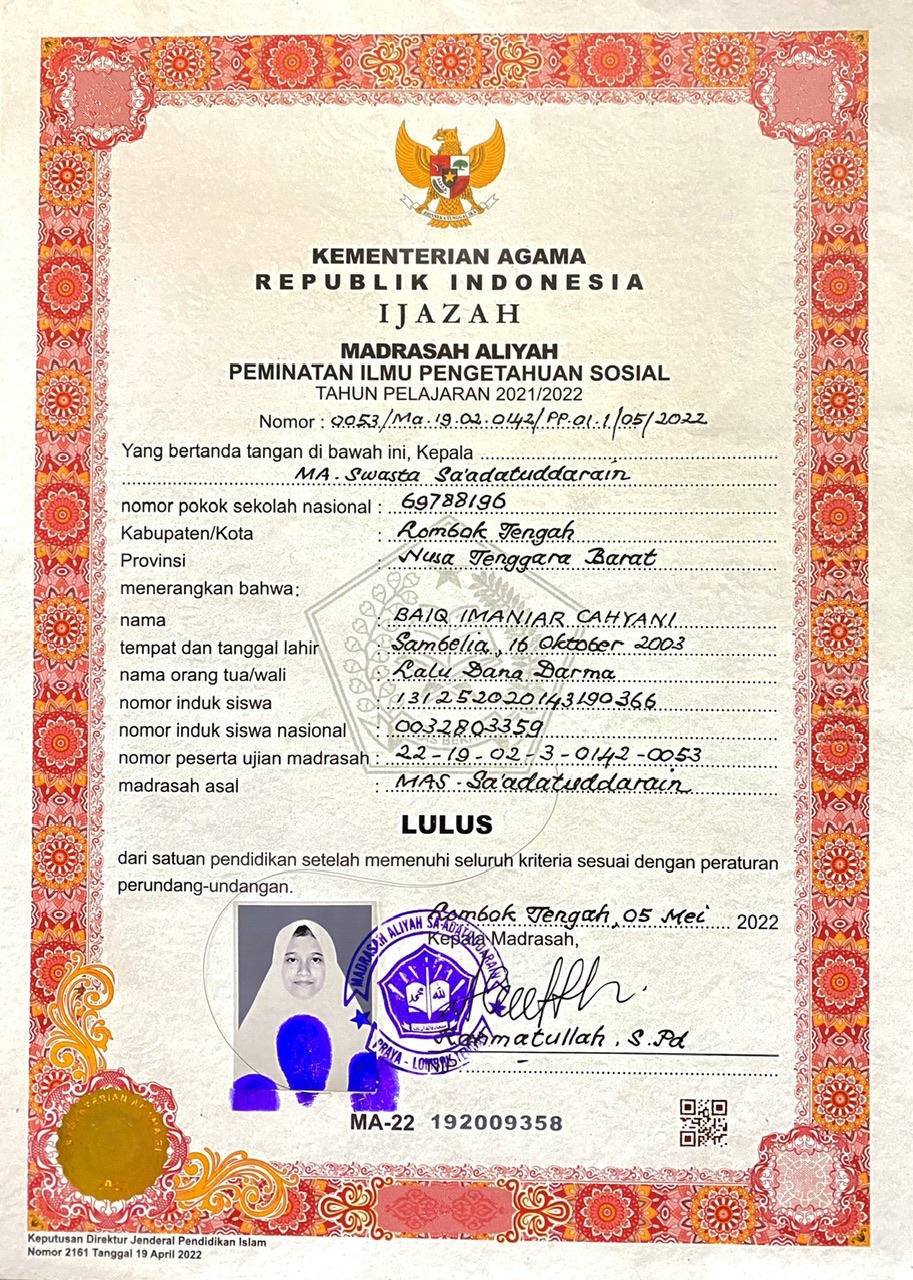 BHINNEKA TUNGGAL IKA
KEMENTERIAN AGAMA
REPUBLIK INDONESIA
IJAZAH
MADRASAH ALIYAH
PEMINATAN ILMU PENGETAHUAN SOSIAL
TAHUN PELAJARAN 2021/2022
Nomor : 0053/Ma.19.02.0142/PP.01.1/05/2022
Yang bertanda tangan di bawah ini, Kepala
MA. Swasta Sa'adatuddarain
nomor pokok sekolah nasional : 69788196
Kabupaten/Kota : Lombok Tengah
Provinsi : Nusa Tenggara Barat
menerangkan bahwa:
nama : BAIQ IMANIAR CAHYANI
tempat dan tanggal lahir : Sambelia, 16 Oktober 2003
nama orang tua/wali : Lalu Dana Darma
nomor induk siswa : 131252020143190366
nomor induk siswa nasional : 0032803359
nomor peserta ujian madrasah : 22-19-02-3-0142-0053
madrasah asal : MAS. Sa'adatuddarain
LULUS
dari satuan pendidikan setelah memenuhi seluruh kriteria sesuai dengan peraturan
perundang-undangan.
Lombok Tengah, 05 Mei 2022
Kepala Madrasah,
MADRASAH ALIYAH SA'ADATUDDARAIN
PRAYA - LOMBOK
Rahmatullah, S.Pd
MA-22 192009358
Keputusan Direktur Jenderal Pendidikan Islam
Nomor 2161 Tanggal 19 April 2022